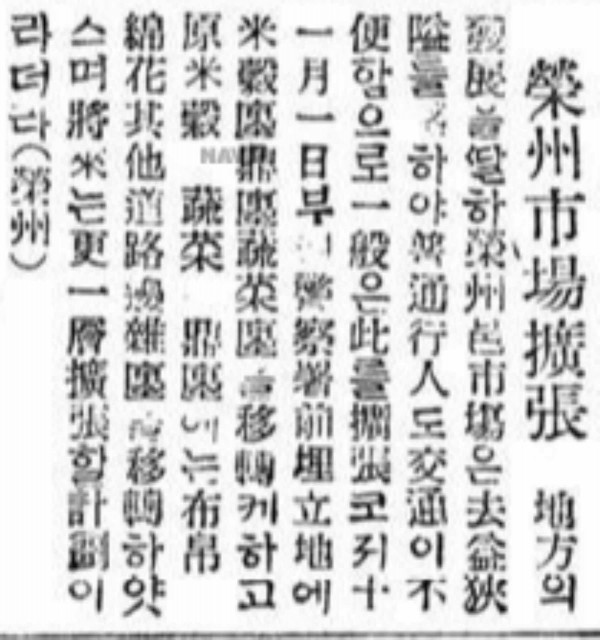 榮州市場擴張 地方의
發展을딸하榮州邑市場은去益狹
隘를 하야普通行人도交通이不
便함으로一般은此를擴張코저十
一月一日부 警察署前埋立地에
米穀廛鼎廛蔬菜廛을移轉케하고
原米穀 蔬菜 鼎廛에는布帛
綿花其他道路邊雜廛을移轉하얏
스며將來는更一層擴張할計劃이
라더다(榮州)